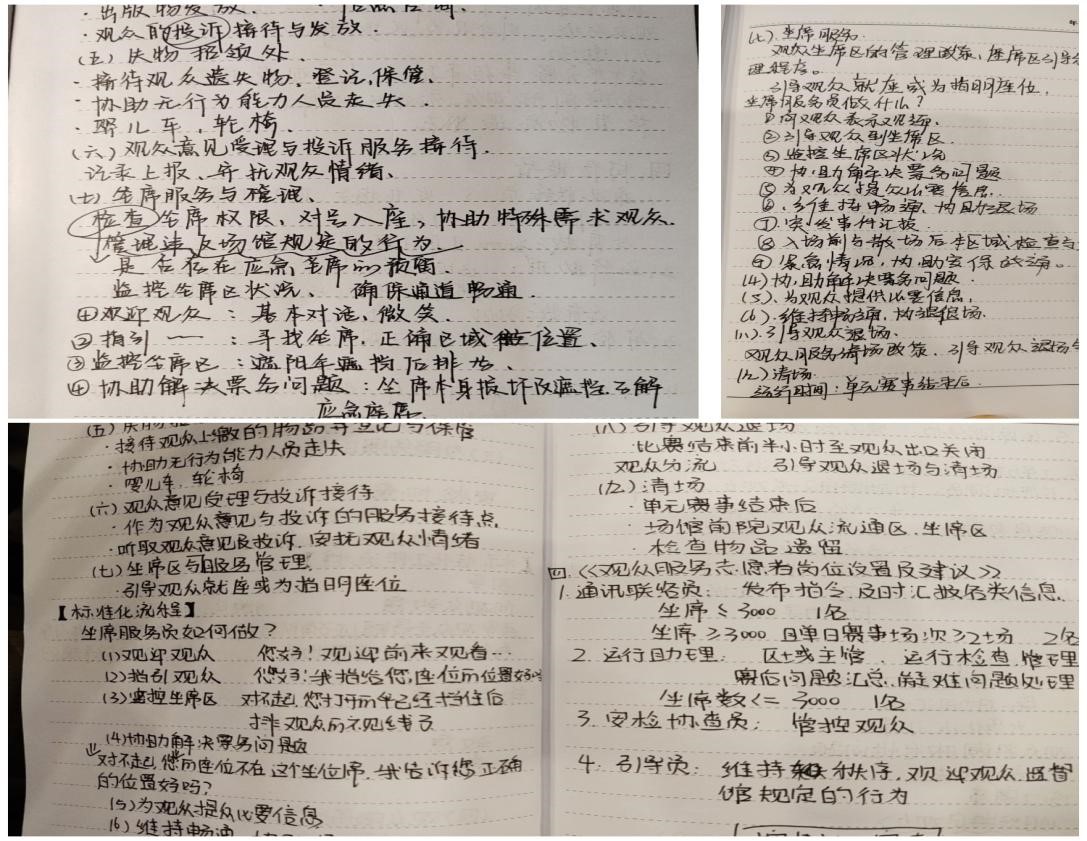 出版物发放
·观众的投诉接待与发放.
(五)失物招领处.
·接待观众遗失物、登记,保管.
·协助无行为能力人员走失.
·婴儿车,轮椅.
(六)观众意见受理与投诉服务接待.
记录上报、安抚观众情绪.
(七)坐席服务与管理.
检查坐席权限,对号入座,协助特殊需求观众
管理违反场馆规定的行为.
是否存在应急坐席的预留.
监控坐席区状况、确保通道畅通.
①欢迎观众:基本对话,微笑.
②指引 一一 :寻找坐席,正确区域 位置.
③监控坐席区:遮阳伞遮挡后排为.
④协助解决票务问题:坐席本身损坏及遮挡.了解
应急座席.
(七).坐席服务
观众坐席区的管理政策,座席区引导
理程序。
引导观众就座或为指明座位,
坐席服务员做什么?
①向观众表示欢迎.
②引导观众到坐席区.
③监控坐席区状况
④协助解决票务问题
⑤为观众提供必要信息.
⑥.维持畅通,协助退场
⑦.突发事件汇报.
⑧入场前与散场后本区域检查
⑨紧急情况,协助安保疏涵.
(4)协助解决票务问题.
(5)、为观众提供必要信息,
(6).维持畅通,协退场.
(八).引导观众退场.
观众服务清场政策.引导观众退场
(九)清场.
运行时间:单元赛事结束后.
·接待观众上缴的物品 登记与保管
·协助无行为能力人员走失
·婴儿车,轮椅
(六)观众意见受理与投诉接待
·作为观众意见与投诉的服务接待点,
·听取观众意见及投诉,安抚观众情绪
(七)坐席区与服务管理
·引导观众就座或为指明座位
【标准化流程】
坐席服务员如何做?
(1)欢迎观众 您好!欢迎前来观看…
(2)指引观众 您好!我指给您,座位的位置好吗
(3)监控坐席区 对不起,您打开的伞已经挡住后
排观众的视线了
(4)协助解决票务问题
对不起,您的座位不在这个坐位席.我告诉您正确
的位置好吗?
(5)为观众提供必要信息
(6)维持畅通
(八)引导观众退场
·比赛结束前半小时至观众出口关闭
观众分流 引导观众退场与清场
(九)清场
·单元赛事结束后
·场馆前院观众流通区.坐席区
·检查物品遗留
四.《观众服务志愿者岗位设置及建议》
1.通讯联络员: 发布指令,及时汇报各类信息.
坐席≤3000 1名
坐席≥3000且单日赛事场次≥2场 2名
2.运行助理: 区域主管、运行检查,管理
赛后问题汇总,疑难问题处理
坐席数<=3000 1名
3.安检协查员: 管控观众
4.引导员: 维持 秩序,欢迎观众,监督
馆规定的行为